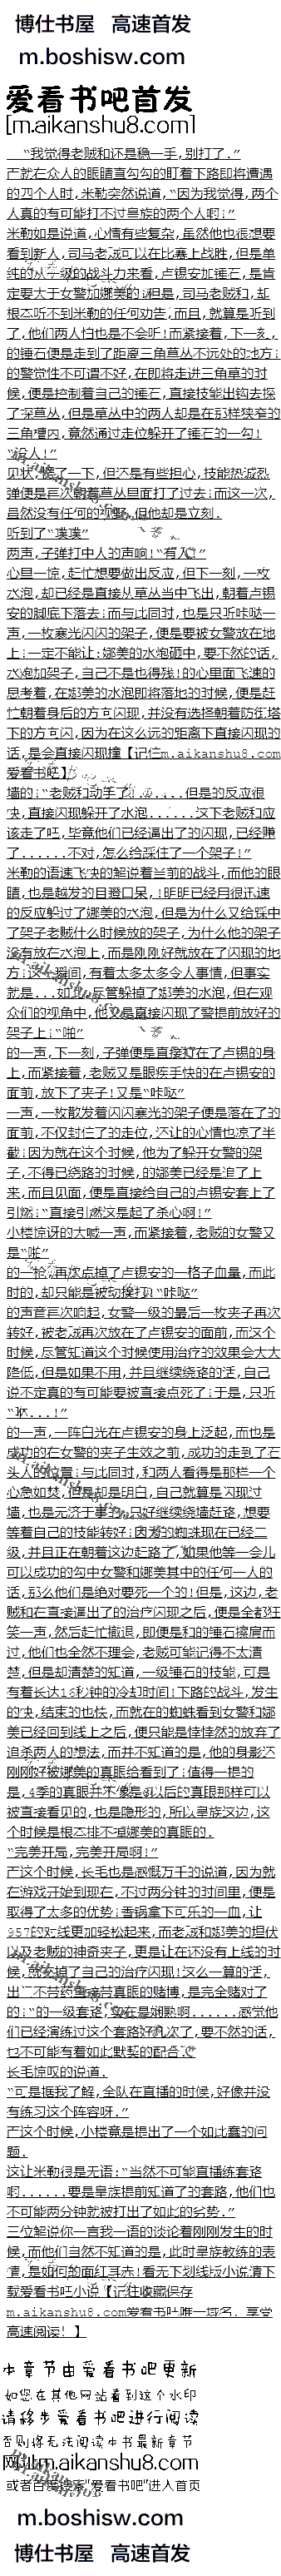 博仕书屋 高速首发
m.boshisw.com
爱看书吧首发
[m.aikanshu8.com]
“我觉得老贼和还是稳一手,别打了.”
而就在众人的眼睛直勾勾的盯着下路即将遭遇
的四个人时,米勒突然说道,“因为我觉得,两个
人真的有可能打不过皇族的两个人啊!”
米勒如是说道,心情有些复杂,虽然他也很想要
看到新人,司马老贼可以在比赛上战胜,但是单
纯的从一级的战斗力来看,卢锡安加锤石,是肯
定要大于女警加娜美的!但是,司马老贼和,却
根本听不到米勒的任何劝告;而且,就算是听到
了,他们两人怕也是不会听!而紧接着,下一刻,
的锤石便是走到了距离三角草丛不远处的地方;
的警觉性不可谓不好,在即将走进三角草的时
候,便是控制着自己的锤石,直接技能出钩去探
了探草丛,但是草丛中的两人却是在那样狭窄的
三角槽内,竟然通过走位躲开了锤石的一勾!
“没人!”
见状,愣了一下,但还是有些担心,技能热诚烈
弹便是再次朝着草丛里面打了过去;而这一次,
虽然没有任何的视野,但他却是立刻.
听到了“噗噗”
两声,子弹打中人的声响!“有人!”
心里一惊,赶忙想要做出反应,但下一刻,一枚
水泡,却已经是直接从草丛当中飞出,朝着卢锡
安的脚底下落去;而与此同时,也是只听咔哒一
声,一枚寒光闪闪的架子,便是要被女警放在地
上;一定不能让:娜美的水炮砸中,要不然的话,
水炮加架子,自己不是也得残!的心里面飞速的
思考着,在娜美的水泡即将落地的时候,便是赶
忙朝着身后的方向闪现,并没有选择朝着防御塔
下的方向闪,因为在这么远的距离下直接闪现的
话,是会直接闪现撞【记住m.aikanshu8.com
爱看书吧】
墙的;“老贼和动手了!......但是的反应很
快,直接闪现躲开了水泡......这下老贼和应
该走了吧,毕竟他们已经逼出了的闪现,已经赚
了......不对,怎么给踩住了一个架子!”
米勒的语速飞快的解说着当前的战斗,而他的眼
睛,也是越发的目瞪口呆,!明明已经用很迅速
的反应躲过了娜美的水泡,但是为什么又给踩中
了架子老贼什么时候放的架子,为什么他的架子
没有放在水泡上,而是刚刚好就放在了闪现的地
方;这个瞬间,有着太多太多令人事情,但事实
就是...如此,尽管躲掉了娜美的水泡,但在观
众们的视角中,他又是直接闪现了警提前放好的
架子上;“啪”
的一声,下一刻,子弹便是直接打在了卢锡的身
上,而紧接着,老贼又是眼疾手快的在卢锡安的
面前,放下了夹子!又是“咔哒”
一声,一枚散发着闪闪寒光的架子便是落在了的
面前,不仅封住了的走位,还让的心情也凉了半
截;因为就在这个时候,他为了躲开女警的架
子,不得已绕路的时候,的娜美已经是追了上
来,而且见面,便是直接给自己的卢锡安套上了
引燃;“直接引燃这是起了杀心啊!”
小楼惊讶的大喊一声,而紧接着,老贼的女警又
是“啪”
的一枪,再次点掉了卢锡安的一格子血量,而此
时的,却只能是被动挨打!“咔哒”
的声音再次响起,女警一级的最后一枚夹子再次
转好,被老贼再次放在了卢锡安的面前,而这个
时候,尽管知道这个时候使用治疗的效果会大大
降低,但是如果不用,并且继续绕路的话,自己
说不定真的有可能要被直接点死了;于是,只听
“咻...!”
的一声,一阵白光在卢锡安的身上泛起,而也是
成功的在女警的夹子生效之前,成功的走到了石
头人的位置;与此同时,和两人看得是那栏一个
心急如焚,但是却是明白,自己就算是闪现过
墙,也是无济于事的,只好继续绕墙赶路,想要
等着自己的技能转好;因为的蜘蛛现在已经二
级,并且正在朝着这边赶路了,如果他等一会儿
可以成功的勾中女警和娜美其中的任何一人的
话,那么他们是绝对要死一个的!但是,这边,老
贼和在直接逼出了的治疗闪现之后,便是全都狂
笑一声,然后赶忙撤退,即便是和的锤石擦肩而
过,他们也全然不理会,老贼可能记得不太清
楚,但是却清楚的知道,一级锤石的技能,可是
有着长达16秒钟的冷却时间!下路的战斗,发生
的快,结束的也快,而就在的蜘蛛看到女警和娜
美已经回到线上之后,便只能是悻悻然的放弃了
追杀两人的想法,而并不知道的是,他的身影还
刚刚好被娜美的真眼给看到了;值得一提的
是,4季的真眼并不像是以后的真眼那样可以
被直接看见的,也是隐形的,所以皇族这边,这
个时候是根本排不掉娜美的真眼的.
“完美开局,完美开局啊!”
而这个时候,长毛也是感慨万千的说道,因为就
在游戏开始到现在,不过两分钟的时间里,便是
取得了太多的优势;香锅拿下可乐的一血,让
957的对线更加轻松起来,而老贼和娜美的埋伏
以及老贼的神奇夹子,更是让在还没有上线的时
候,就交掉了自己的治疗闪现!这么一算的话,
出门不带药单单带真眼的赌博,是完全赌对了
的;“的一级套路,实在是娴熟啊......感觉他
们已经演练过这个套路好几次了,要不然的话,
也不可能有着如此默契的配合;”
长毛惊叹的说道.
“可是据我了解,全队在直播的时候,好像并没
有练习这个阵容呀.”
而这个时候,小楼竟是提出了一个如此蠢的问
题.
这让米勒很是无语:“当然不可能直播练套路
啊......要是皇族提前知道了的套路,他们也
不可能两分钟就被打出了如此的劣势.”
三位解说你一言我一语的谈论着刚刚发生的时
候,而他们当然不知道的是,此时皇族教练的表
情,是如何的面红耳赤!看无下划线版小说请下
载爱看书吧小说【记住收藏保存
m.aikanshu8.com爱看书吧唯一域名，享受
高速阅读！】
本章节由爱看书吧更新
如您在其他网站看到这个水印
请移步爱看书吧进行阅读
否则将无法阅读本书最新章节
网址m.aikanshu8.com
或者百度搜索“爱看书吧”进入首页
m.boshisw.com
博仕书屋 高速首发